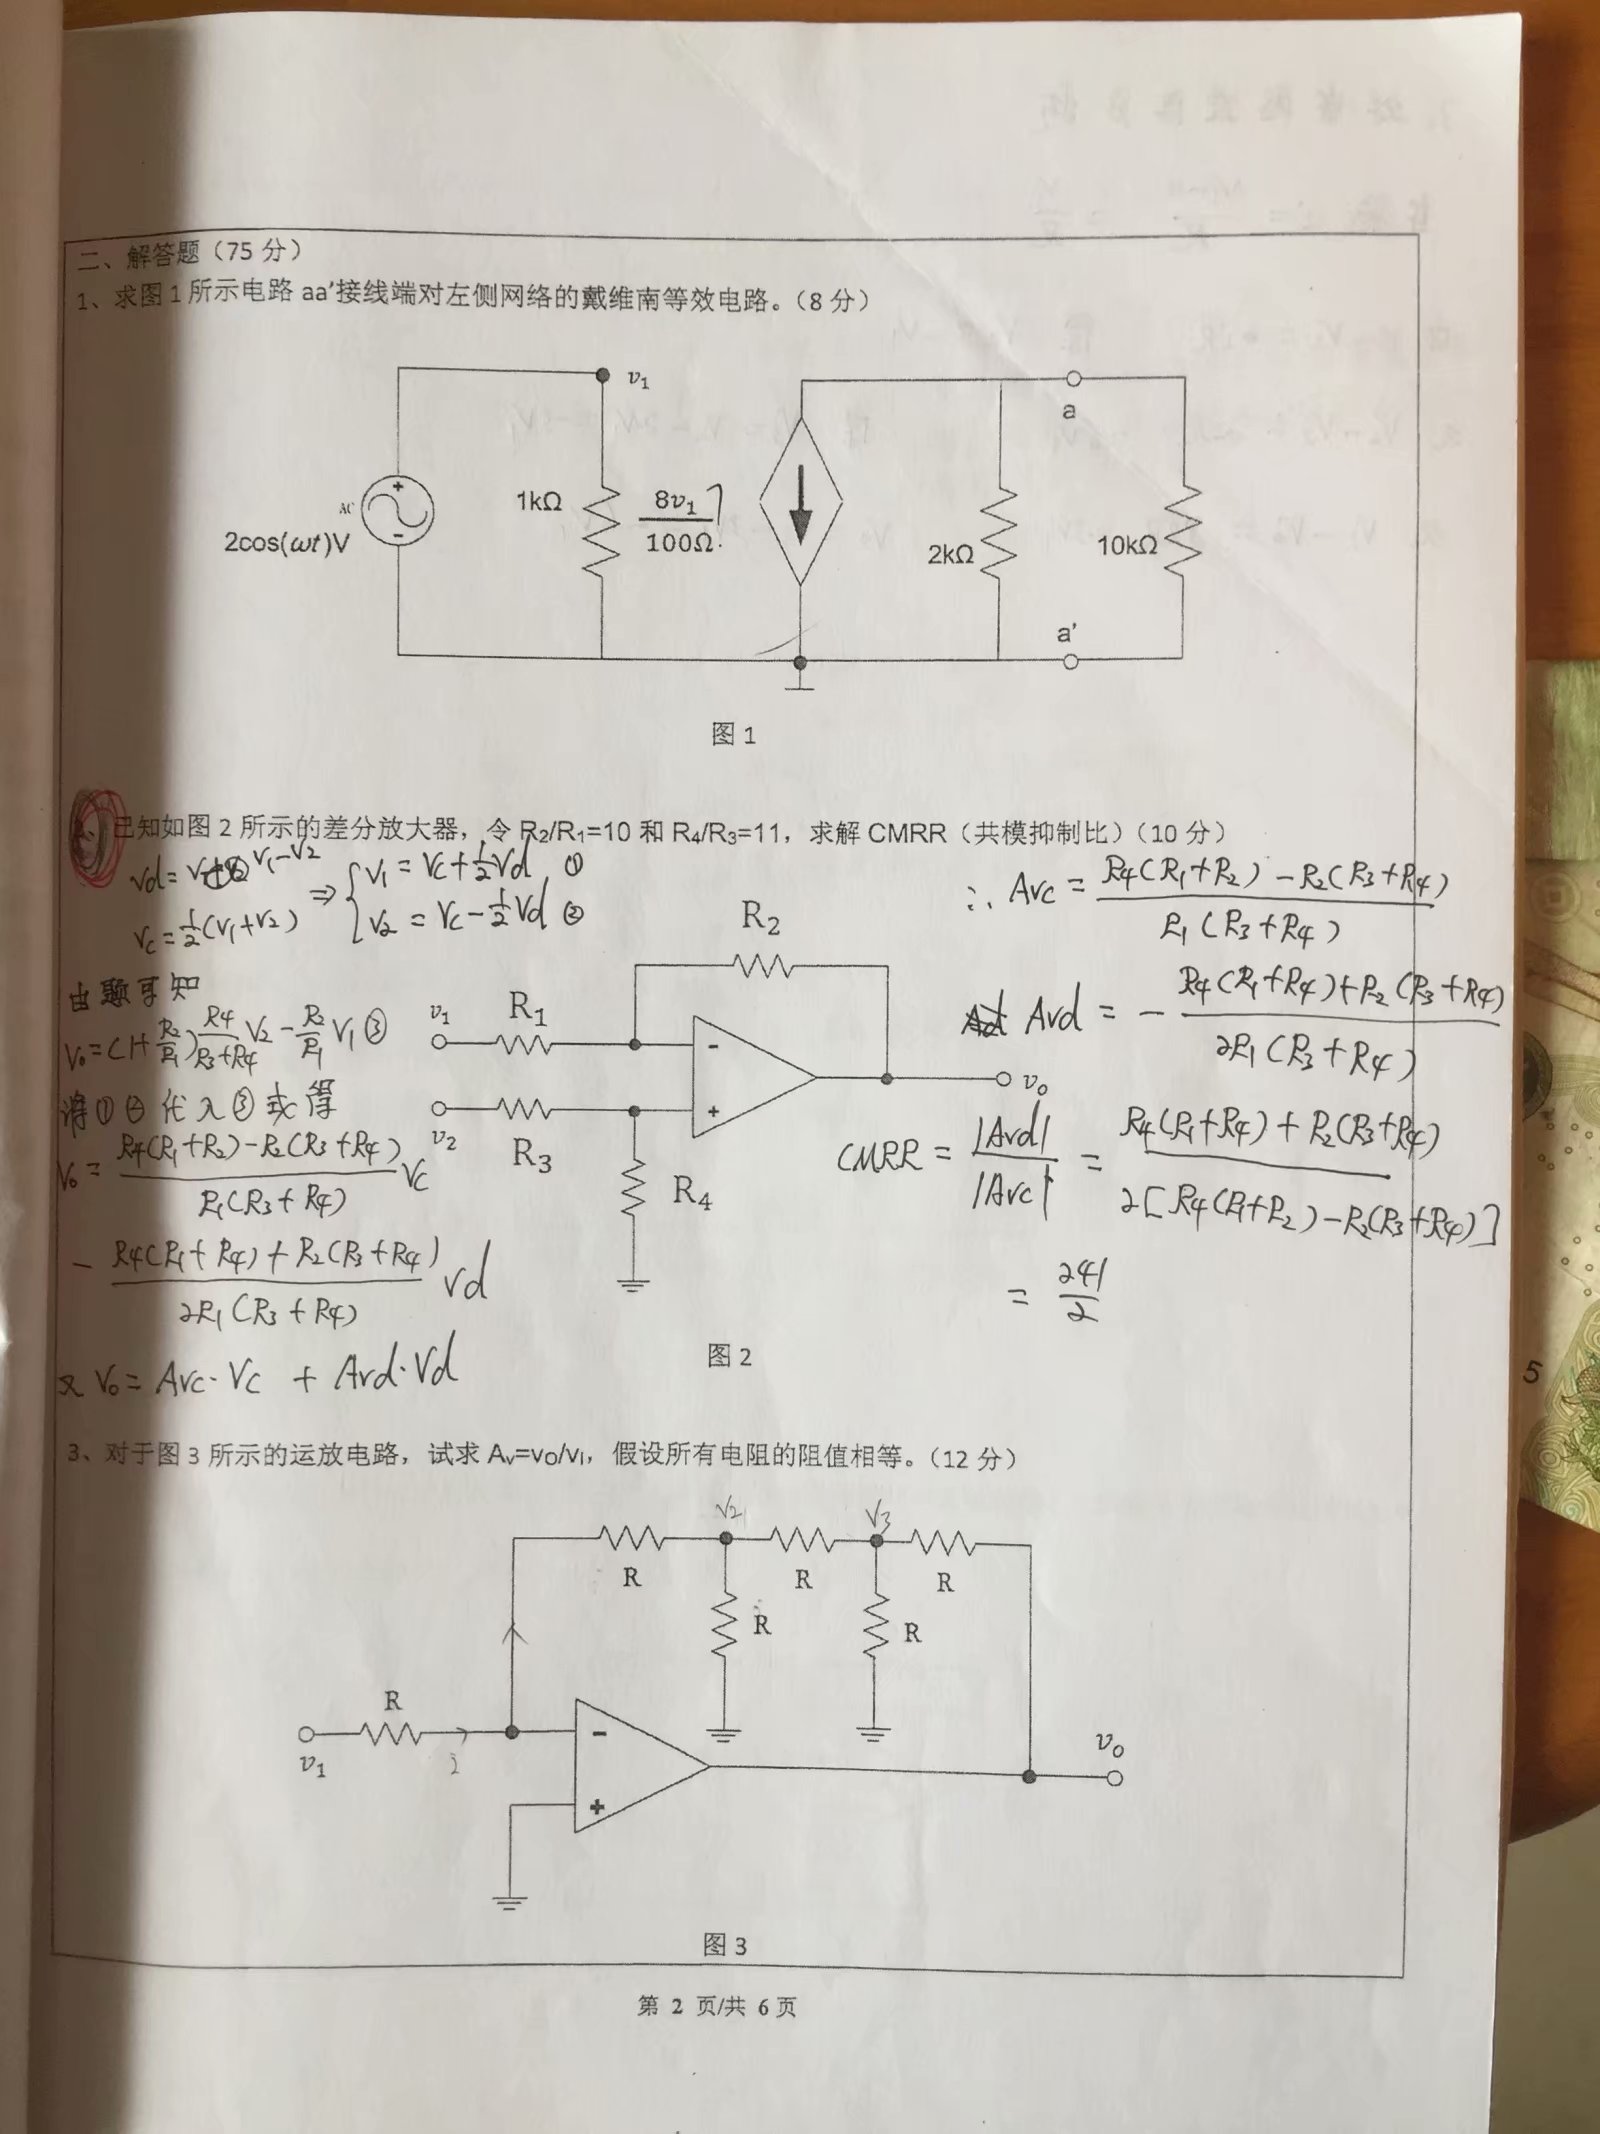 二、解答题（75 分）
1、求图 1 所示电路 aa'接线端对左侧网络的戴维南等效电路。（8 分）
v₁
a
AC
+
-
2cos(ωt)V
1kΩ
8v₁
100Ω
2kΩ
10kΩ
a'
图 1
已知如图 2 所示的差分放大器，令 R₂/R₁=10 和 R₄/R₃=11，求解 CMRR（共模抑制比）（10 分）
Vd = V₁-V₂
Vc = ½(V₁+V₂)
⇒ { V₁ = Vc + ½Vd ①
V₂ = Vc - ½Vd ②
由题可知
V₀ = (1+R₂/R₁) R₄/(R₃+R₄) V₂ - R₂/R₁ V₁ ③
将①②代入③式得
V₀ = [R₄(R₁+R₂)-R₂(R₃+R₄)] / [R₁(R₃+R₄)] Vc
- [R₄(R₁+R₄)+R₂(R₃+R₄)] / [2R₁(R₃+R₄)] Vd
又 V₀ = Avc·Vc + Avd·Vd
R₂
v₁
R₁
-
+
v₀
v₂
R₃
R₄
图 2
∴ Avc = [R₄(R₁+R₂)-R₂(R₃+R₄)] / [R₁(R₃+R₄)]
Avd = - [R₄(R₁+R₄)+R₂(R₃+R₄)] / [2R₁(R₃+R₄)]
CMRR = |Avd| / |Avc| = [R₄(R₁+R₄)+R₂(R₃+R₄)] / 2[R₄(R₁+R₂)-R₂(R₃+R₄)]
= 241/2
3、对于图 3 所示的运放电路，试求 Aᵥ=vo/vI，假设所有电阻的阻值相等。（12 分）
V₂
V₃
R
R
R
R
R
R
v₁
i
-
+
v₀
图 3
第 2 页/共 6 页
5